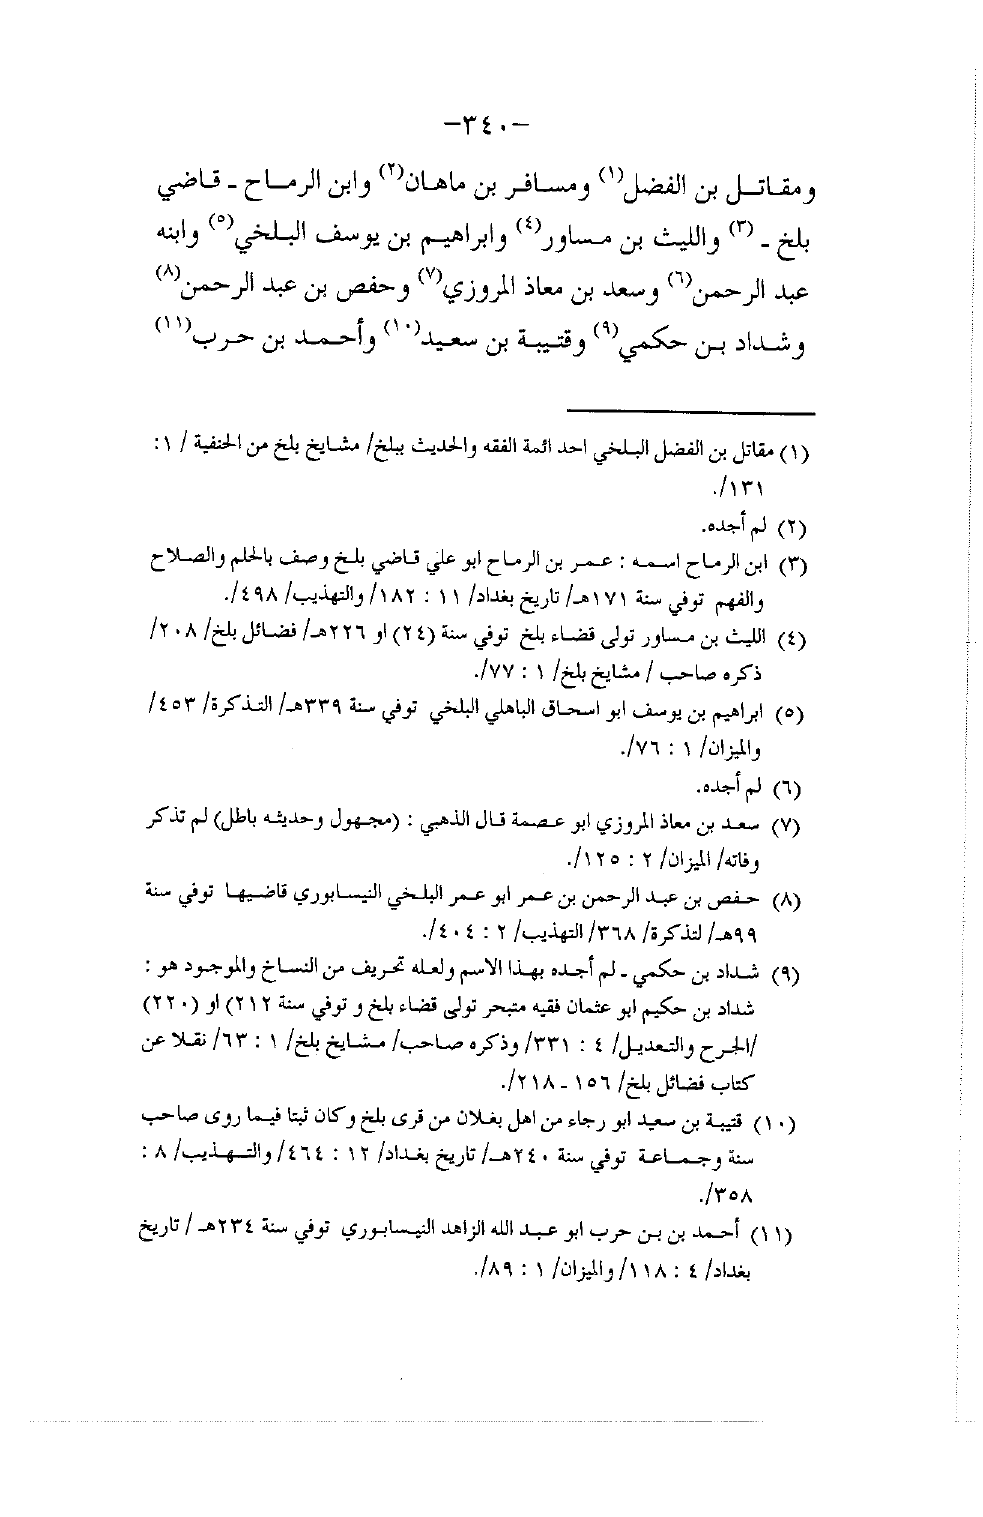 –٣٤٠–
ومقاتل بن الفضل(١) ومسافر بن ماهان(٢) وابن الرماح ـ قاضي
بلخ ـ (٣) والليث بن مساور(٤) وابراهيم بن يوسف البلخي(٥) وابنه
عبد الرحمن(٦) وسعد بن معاذ المروزي(٧) وحفص بن عبد الرحمن(٨)
وشداد بن حكمي(٩) وقتيبة بن سعيد(١٠) وأحمد بن حرب(١١)
(١) مقاتل بن الفضل البلخي احد ائمة الفقه والحديث ببلخ/ مشايخ بلخ من الحنفية / ١:
١٣١/.
(٢) لم أجده.
(٣) ابن الرماح اسمه : عمر بن الرماح ابو علي قاضي بلخ وصف بالحلم والصلاح
والفهم توفي سنة ١٧١هـ/ تاريخ بغداد/ ١١ : ١٨٢/ والتهذيب/ ٤٩٨/.
(٤) الليث بن مساور تولى قضاء بلخ توفي سنة (٢٤) او ٢٢٦هـ/ فضائل بلخ/ ٢٠٨/
ذكره صاحب / مشايخ بلخ/ ١ : ٧٧/.
(٥) ابراهيم بن يوسف ابو اسحاق الباهلي البلخي توفي سنة ٣٣٩هـ/ التذكرة/ ٤٥٣/
والميزان/ ١ : ٧٦/.
(٦) لم أجده.
(٧) سعد بن معاذ المروزي ابو عصمة قال الذهبي : (مجهول وحديثه باطل) لم تذكر
وفاته/ الميزان/ ٢ : ١٢٥/.
(٨) حفص بن عبد الرحمن بن عمر ابو عمر البلخي النيسابوري قاضيها توفي سنة
٩٩هـ/ لتذكرة/ ٣٦٨/ التهذيب/ ٢ : ٤٠٤/.
(٩) شداد بن حكمي ـ لم أجده بهذا الاسم ولعله تحريف من النساخ والموجود هو :
شداد بن حكيم ابو عثمان فقيه متبحر تولى قضاء بلخ و توفي سنة ٢١٢) او (٢٢٠)
/الجرح والتعديل/ ٤ : ٣٣١/ وذكره صاحب/ مشايخ بلخ/ ١ : ٦٣/ نقلا عن
كتاب فضائل بلخ/ ١٥٦ ـ ٢١٨/.
(١٠) قتيبة بن سعيد ابو رجاء من اهل بغلان من قرى بلخ وكان ثبتا فيما روى صاحب
سنة وجماعة توفي سنة ٢٤٠هـ/ تاريخ بغداد/ ١٢ : ٤٦٤/ والتهذيب/ ٨ :
٣٥٨/.
(١١) أحمد بن بن حرب ابو عبد الله الزاهد النيسابوري توفي سنة ٢٣٤هـ / تاريخ
بغداد/ ٤ : ١١٨/ والميزان/ ١ : ٨٩/.